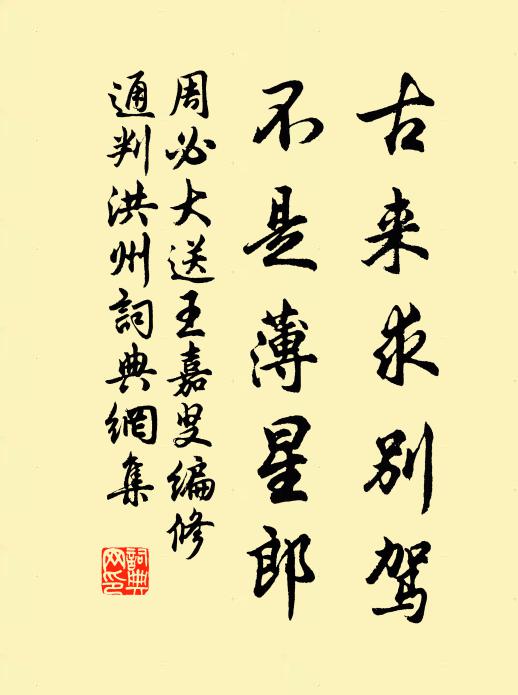 古来求别驾
不是薄星郎
周必大送王嘉叟编修
通判洪州詞典網集
詞典網印